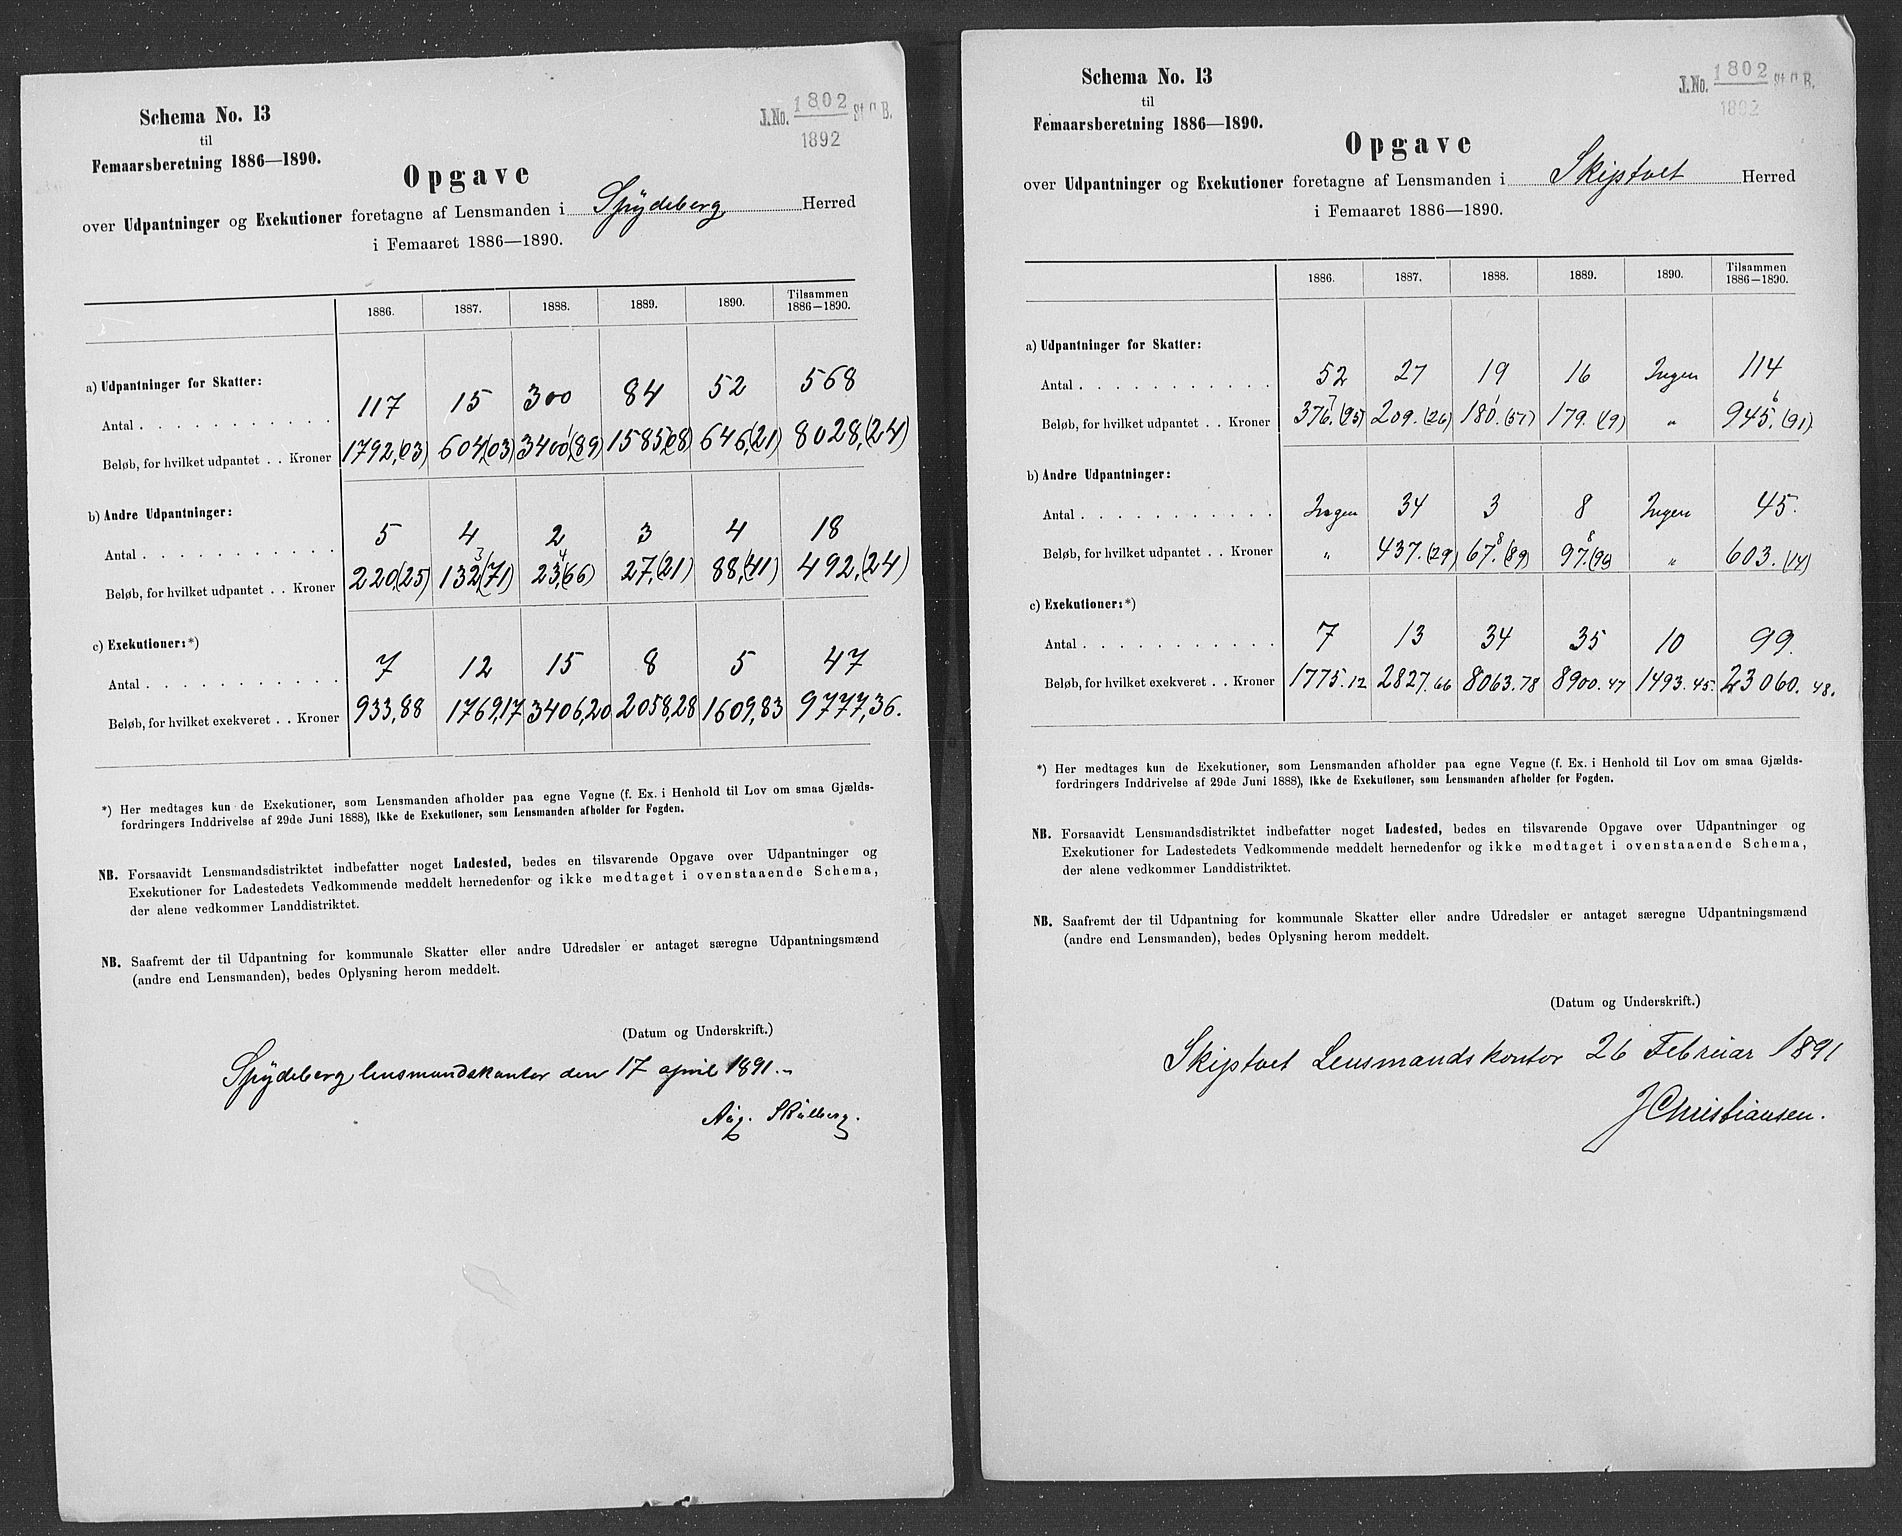 Schema No. 13
til
Femaarsberetning 1886—1890.
J.No. 1802 St. C. B.
1892
Opgave
over Udpantninger og Exekutioner foretagne af Lensmanden i Spydeberg Herred
i Femaaret 1886—1890.
1886. 1887. 1888. 1889. 1890. Tilsammen 1886—1890.
a) Udpantninger for Skatter:
Antal . . . . . . . . . . . 117 15 300 84 52 568
Beløb, for hvilket udpantet . . Kroner 1792,(03) 604,(03) 3400,(89) 1585,(08) 646,(21) 8028,(24)
b) Andre Udpantninger:
Antal . . . . . . . . . . . 5 4 2 3 4 18
Beløb, for hvilket udpantet . . Kroner 220,(25) 132,(71) 23,(66) 27,(21) 88,(41) 492,(24)
c) Exekutioner:*)
Antal . . . . . . . . . . . 7 12 15 8 5 47
Beløb, for hvilket exekveret . . Kroner 933,88 1769,17 3406,20 2058,28 1609,83 9777,36.
*) Her medtages kun de Exekutioner, som Lensmanden afholder paa egne Vegne (f. Ex. i Henhold til Lov om smaa Gjælds-
fordringers Inddrivelse af 29de Juni 1888), ikke de Exekutioner, som Lensmanden afholder for Fogden.
NB. Forsaavidt Lensmandsdistriktet indbefatter noget Ladested, bedes en tilsvarende Opgave over Udpantninger og
Exekutioner for Ladestedets Vedkommende meddelt hernedenfor og ikke medtaget i ovenstaaende Schema,
der alene vedkommer Landdistriktet.
NB. Saafremt der til Udpantning for kommunale Skatter eller andre Udredsler er antaget særegne Udpantningsmænd
(andre end Lensmanden), bedes Oplysning herom meddelt.
(Datum og Underskrift.)
Spydeberg lensmandskontor den 17 april 1891.
Aug. Skulberg.
Schema No. 13
til
Femaarsberetning 1886—1890.
J.No. 1802 St. C. B.
1892
Opgave
over Udpantninger og Exekutioner foretagne af Lensmanden i Skiptvet Herred
i Femaaret 1886—1890.
1886. 1887. 1888. 1889. 1890. Tilsammen 1886—1890.
a) Udpantninger for Skatter:
Antal . . . . . . . . . . . 52 27 19 16 Ingen 114
Beløb, for hvilket udpantet . . Kroner 376.(95) 209.(26) 180.(57) 179.(19) „ 945.(91)
b) Andre Udpantninger:
Antal . . . . . . . . . . . Ingen 34 3 8 Ingen 45.
Beløb, for hvilket udpantet . . Kroner „ 437.(29) 67.(89) 97.(96) „ 603.(14)
c) Exekutioner:*)
Antal . . . . . . . . . . . 7 13 34 35 10 99.
Beløb, for hvilket exekveret . . Kroner 1775.12 2827.66 8063.78 8900.47 1493.45 23060.48.
*) Her medtages kun de Exekutioner, som Lensmanden afholder paa egne Vegne (f. Ex. i Henhold til Lov om smaa Gjælds-
fordringers Inddrivelse af 29de Juni 1888), ikke de Exekutioner, som Lensmanden afholder for Fogden.
NB. Forsaavidt Lensmandsdistriktet indbefatter noget Ladested, bedes en tilsvarende Opgave over Udpantninger og
Exekutioner for Ladestedets Vedkommende meddelt hernedenfor og ikke medtaget i ovenstaaende Schema,
der alene vedkommer Landdistriktet.
NB. Saafremt der til Udpantning for kommunale Skatter eller andre Udredsler er antaget særegne Udpantningsmænd
(andre end Lensmanden), bedes Oplysning herom meddelt.
(Datum og Underskrift.)
Skiptvet Lensmandskontor 26 Februar 1891
J Christiansen.